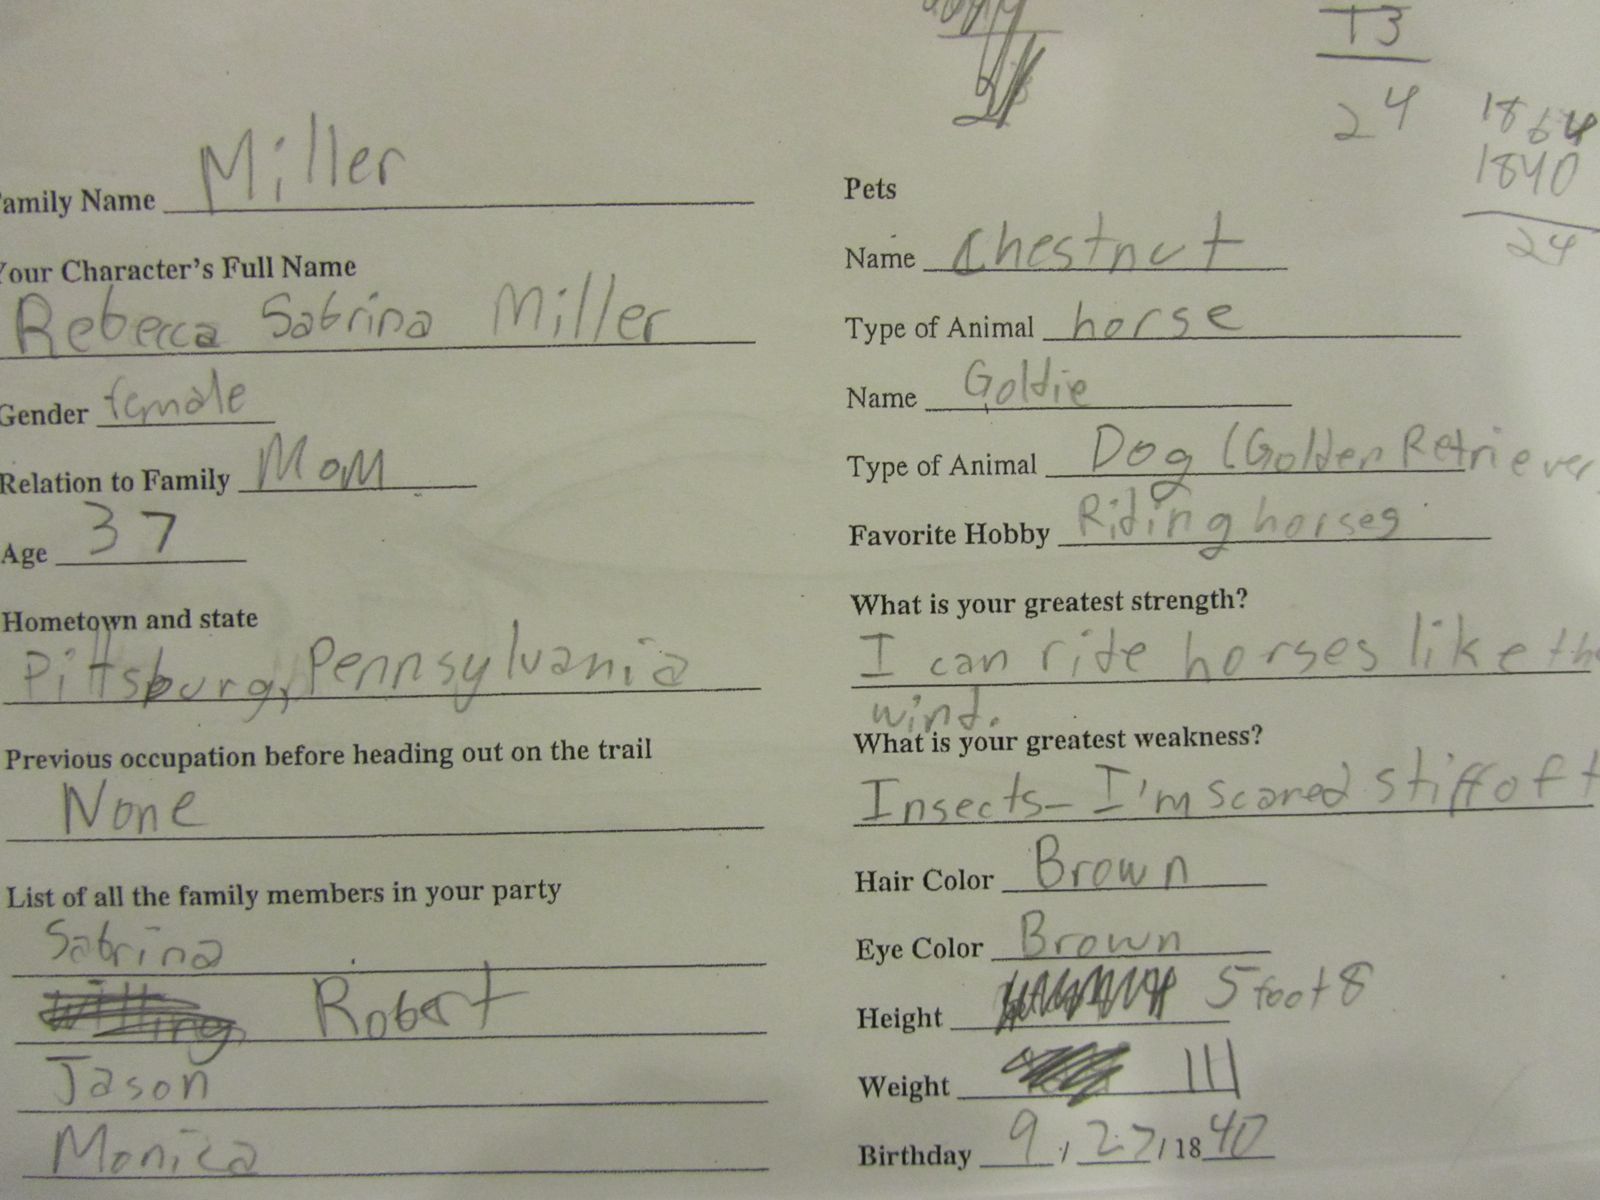 13
24
1864
1840
24
amily Name Miller
Your Character's Full Name
Rebecca Sabrina Miller
Gender female
Relation to Family Mom
Age 37
Hometown and state
Pittsburg, Pennsylvania
Previous occupation before heading out on the trail
None
List of all the family members in your party
Sabrina
Robert
Jason
Monica
Pets
Name Chestnut
Type of Animal horse
Name Goldie
Type of Animal Dog (Golden Retriever
Favorite Hobby Riding horses
What is your greatest strength?
I can ride horses like the
wind.
What is your greatest weakness?
Insects- I'm scared stiff of t
Hair Color Brown
Eye Color Brown
Height 5 foot 8
Weight 111
Birthday 9 / 27 / 1840